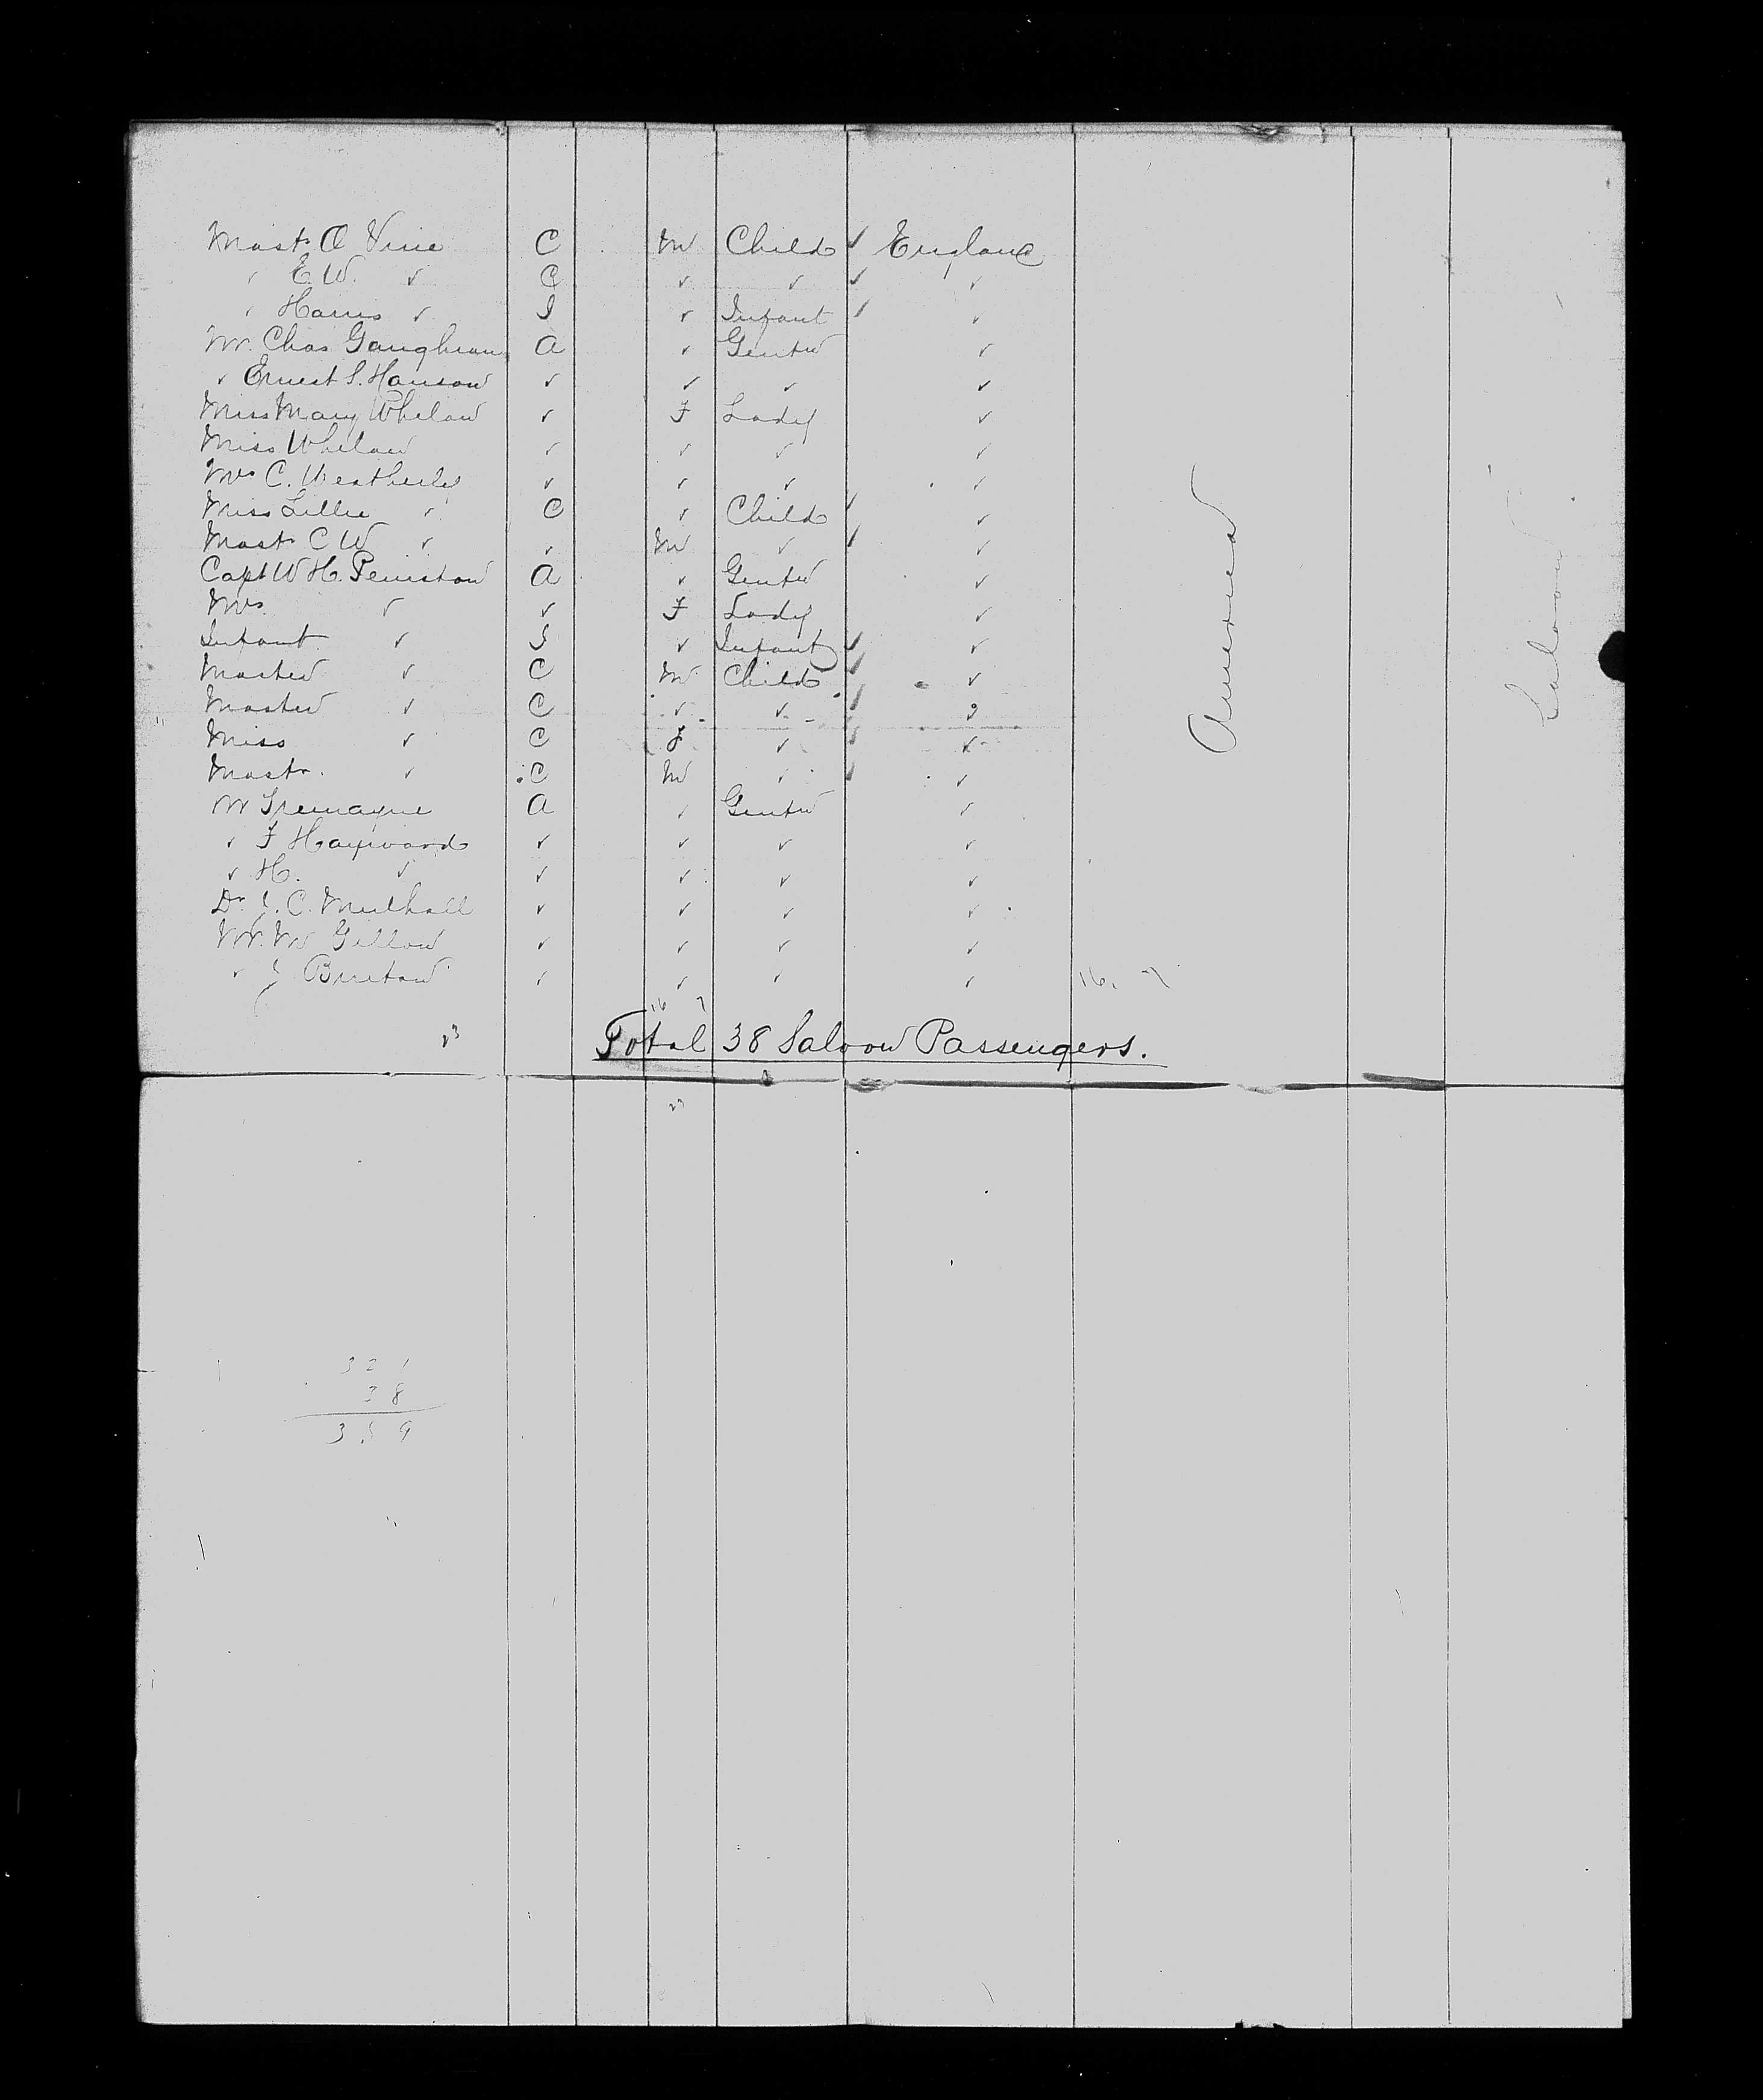 Mastr O Vine C M Child ✓ England
✓ E.W. ✓ C ✓ ✓ ✓ ✓
✓ Harris ✓ I ✓ Infant ✓ ✓
Mr. Chas Gaughran A ✓ Gentn ✓
✓ Ernest S. Hanson ✓ ✓ ✓ ✓
Miss Mary Whelan ✓ F Lady ✓
Miss Whelan ✓ ✓ ✓ ✓
Mrs C. Weatherly ✓ ✓ ✓ ✓
Miss Lillie ✓ C ✓ Child ✓ ✓
Mastr C W ✓ ✓ M ✓ ✓ ✓
Capt W H. Peniston A ✓ Gentn ✓
Mrs. ✓ ✓ F Lady ✓
Infant ✓ I ✓ Infant ✓ ✓
Master ✓ C M Child ✓ ✓
Master ✓ C ✓ ✓ ✓ ✓
Miss ✓ C F ✓ ✓ ✓
Mastr. ✓ C M ✓ ✓ ✓
Mr Tremayne A ✓ Gentn ✓
✓ F Hayward ✓ ✓ ✓ ✓
✓ H. ✓ ✓ ✓ ✓ ✓
Dr. J. C. Mulhall ✓ ✓ ✓ ✓
Mr. W Gillow ✓ ✓ ✓ ✓
✓ J Breton ✓ ✓ ✓ ✓ 16. 7
America
Saloon
16 7
23 Total 38 Saloon Passengers.
23
321
38
359